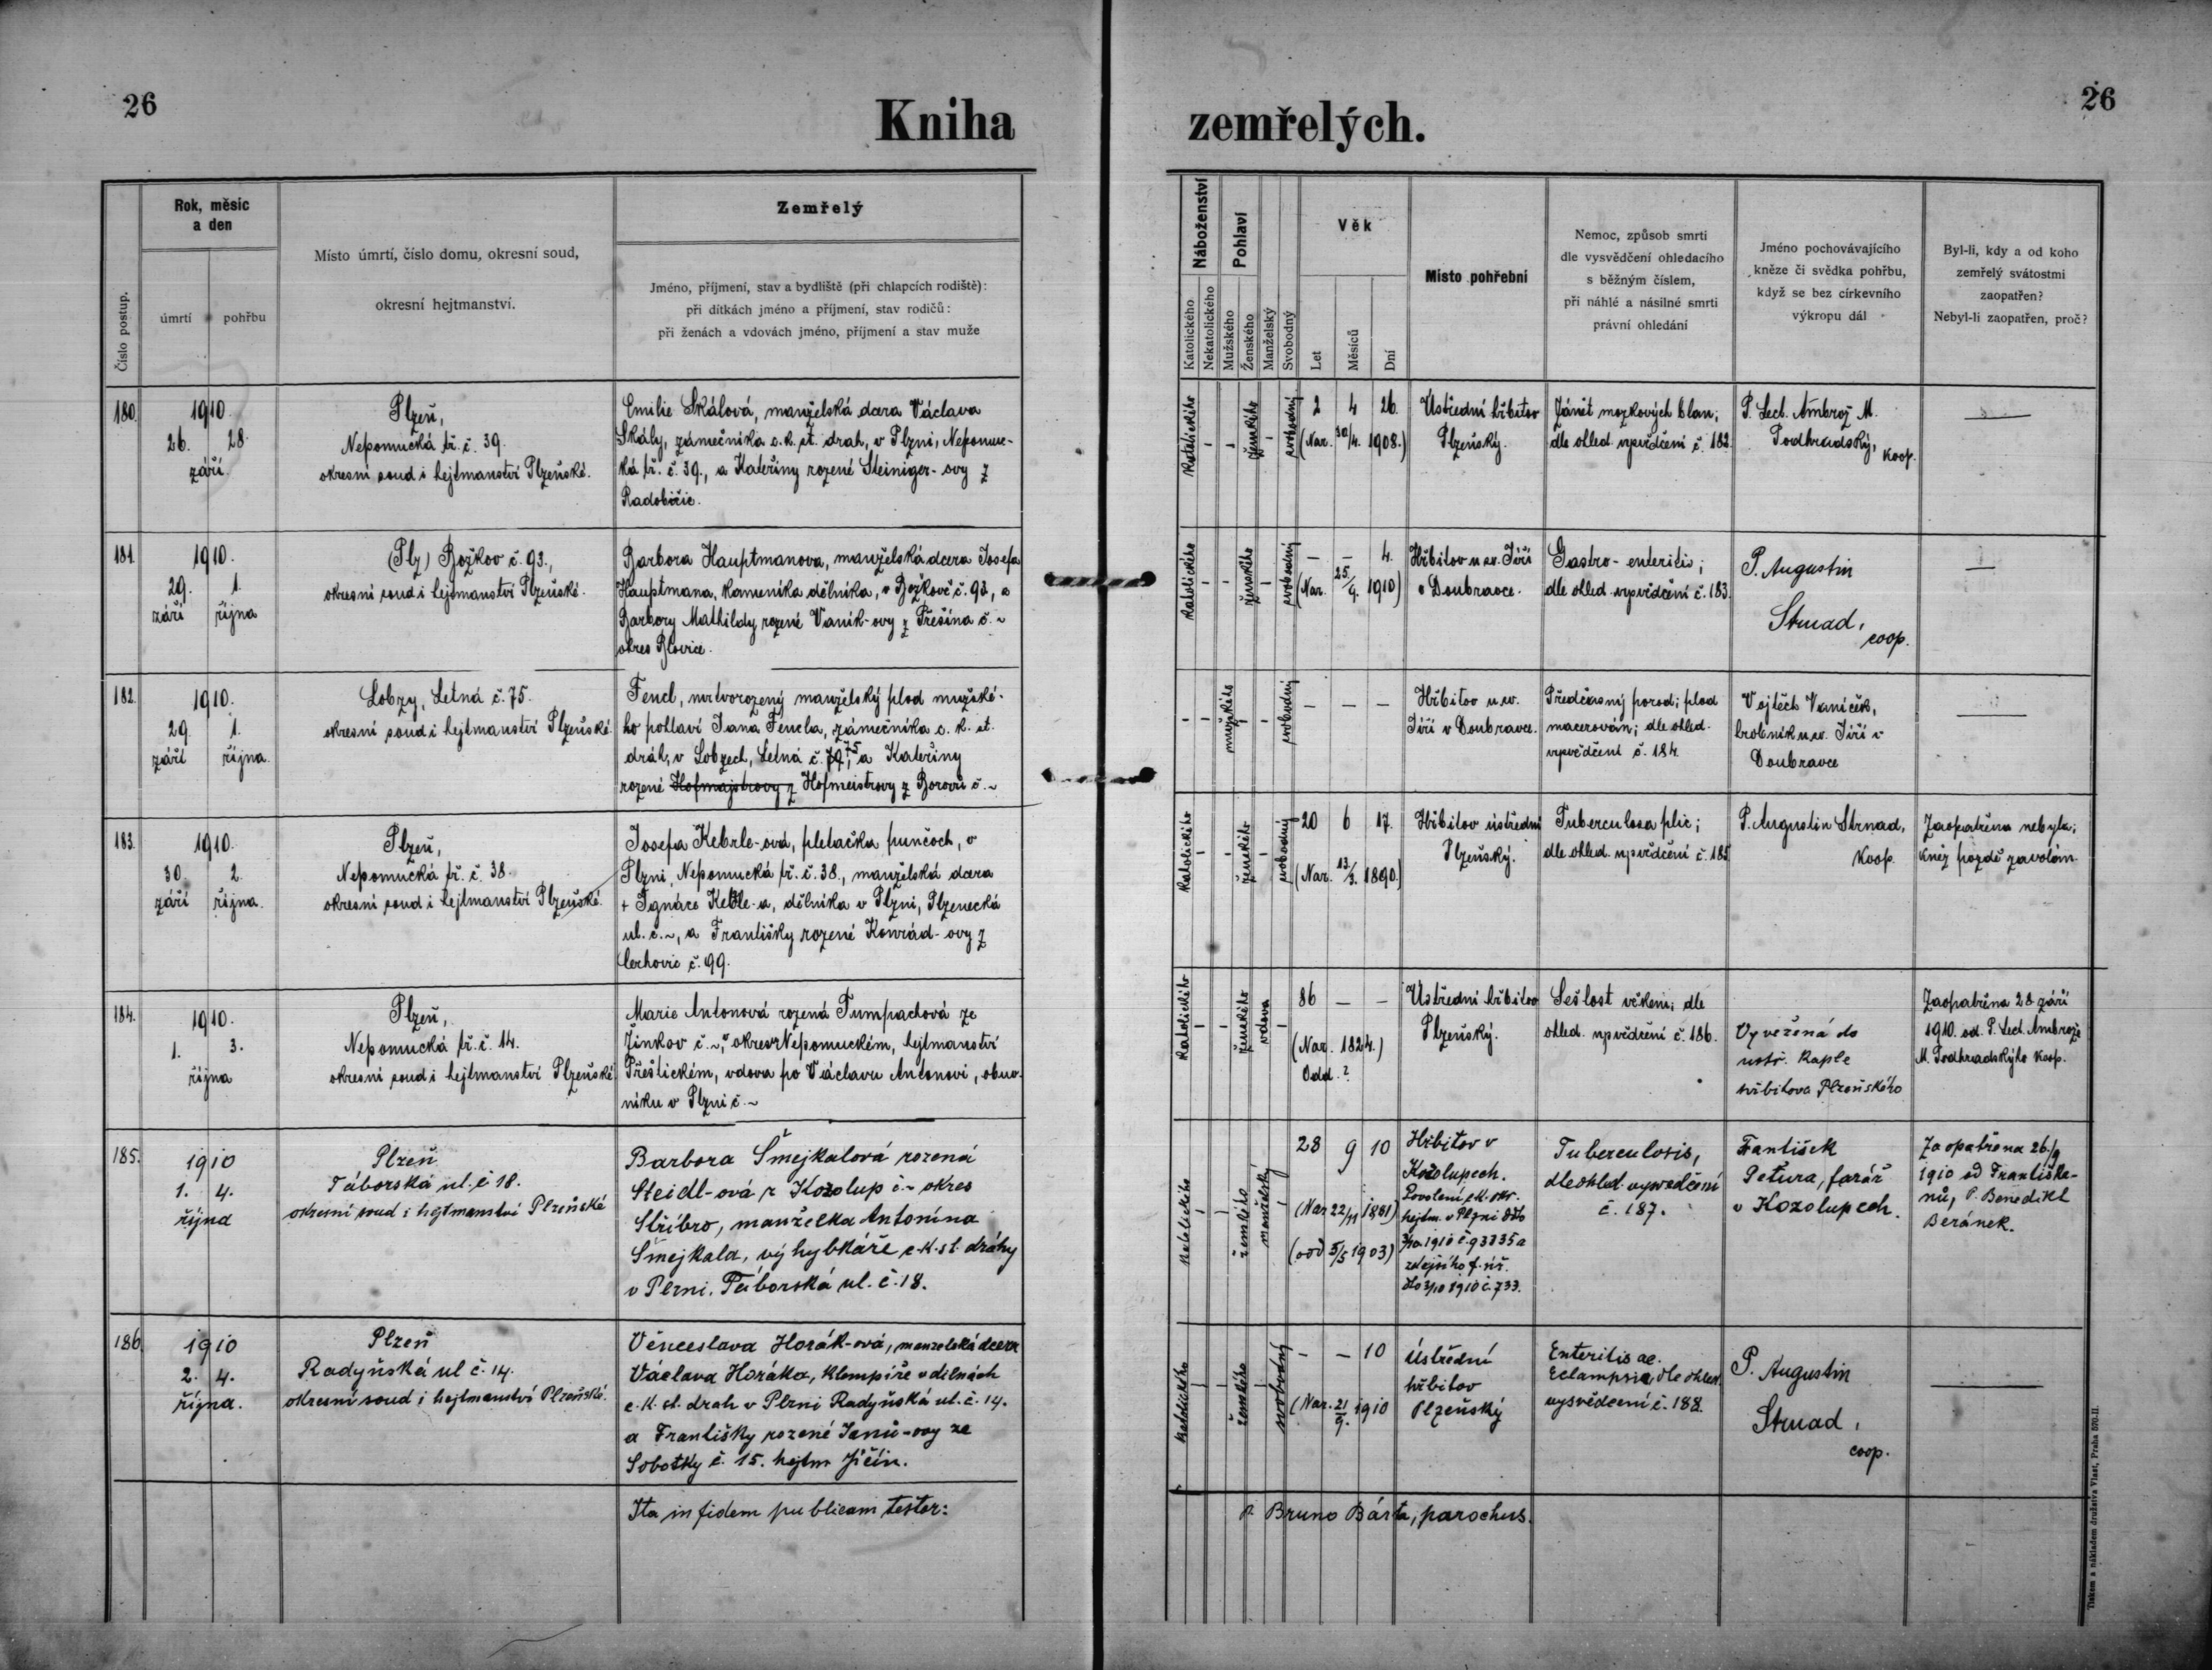 26
Kniha
zemřelých.
26
Číslo postup.
Rok, měsíc
a den
úmrtí
pohřbu
Místo úmrtí, číslo domu, okresní soud,
okresní hejtmanství.
Zemřelý
Jméno, příjmení, stav a bydliště (při chlapcích rodiště):
při dítkách jméno a příjmení, stav rodičů:
při ženách a vdovách jméno, příjmení a stav muže
Náboženství
Katolického
Nekatolického
Pohlaví
Mužského
Ženského
Manželský
Svobodný
Věk
Let
Měsíců
Dní
Místo pohřební
Nemoc, způsob smrti
dle vysvědčení ohledacího
s běžným číslem,
při náhlé a násilné smrti
právní ohledání
Jméno pochovávajícího
kněze či svědka pohřbu,
když se bez církevního
výkropu dál
Byl-li, kdy a od koho
zemřelý svátostmi
zaopatřen?
Nebyl-li zaopatřen, proč?
180.
1910.
26. 28.
září.
Plzeň,
Nepomucká tř. č. 39.
okresní soud i hejtmanství Plzeňské.
Emilie Skálová, manželská dcera Václava
Skály, zámečníka c. k. st. drah, v Plzni, Nepomuc-
ká tř. č. 39., a Kateřiny rozené Steiniger-ovy z
Radobičic.
Katolického
-
-
ženského
-
svobodný
2 4 26.
(Nar. 30/4. 1908.)
Ústřední hřbitov
Plzeňský.
Zánět mozkových blan;
dle ohled. vysvědčení č. 182.
P. Lect. Ambrož M.
Podhradský,
koop.
—
181.
1910.
29. 1.
září října
(Plz) Božkov č. 93.,
okresní soud i hejtmanství Plzeňské.
Barbora Hauptmanova, manželská dcera Josefa
Hauptmana, kameníka dělníka, v Božkově č. 93, a
Barbory Mathildy rozené Vaník-ovy z Třešína č. ~
okres Blovice.
Katolického
-
-
ženského
-
svobodný
— — 4.
(Nar. 25/9. 1910)
Hřbitov u sv. Jiří
v Doubravce.
Gastro-enteritis;
dle ohled. vysvědčení č. 183.
P. Augustin
Strnad,
coop.
—
182.
1910.
29. 1.
září října.
Lobzy, Letná č. 75.
okresní soud i hejtmanství Plzeňské.
Fencl, mrtvorozený manželský plod mužské-
ho pohlaví Jana Fencla, zámečníka c. k. st.
dráh, v Lobzech, Letná č. 79, 75 a Kateřiny
rozené Hofmajstrovy z Hofmeistrovy z Borovů č. ~
-
-
mužského
-
-
svobodný
— — —
Hřbitov u sv.
Jiří v Doubravce.
Předčasný porod; plod
macerován; dle ohled.
vysvědčení č. 184.
Vojtěch Vaníček,
hrobník u sv. Jiří v
Doubravce
—
183.
1910.
30. 2.
září října.
Plzeň,
Nepomucká tř. č. 38.
okresní soud i hejtmanství Plzeňské.
Josefa Kebrle-ová, pletačka punčoch, v
Plzni, Nepomucká tř. č. 38., manželská dcera
+ Ignáce Kebrle-a, dělníka v Plzni, Plzenecká
ul. č. ~, a Františky rozené Konrád-ovy z
č. 99.
Katolického
-
-
ženského
-
svobodný
20 6 17.
(Nar. 13/3. 1890.)
Hřbitov ústřední
Plzeňský.
Tuberculosa plic;
dle ohled. vysvědčení č. 185
P. Augustin Strnad,
koop.
Zaopatřena nebyla;
kněz pozdě zavolán.
184.
1910.
1. 3.
října
Plzeň,
Nepomucká tř. č. 14.
okresní soud i hejtmanství Plzeňské
Marie Antonová rozená Tumpachová ze
Žinkov č. ~, v okresu Nepomuckém, hejtmanství
Přeštickém, vdova po Václavu Antonovi, obuv-
níku v Plzni č. ~
Katolického
-
-
ženského
vdova
-
86 — —
(Nar. 1824.)
Odd. ?
Ústřední hřbitov
Plzeňský.
Sešlost věkem; dle
ohled. vysvědčení č. 186.
Vyvežená do
ústř. kaple
hřbitova Plzeňského
Zaopatřena 28 září
1910. od P. Lect. Ambrože
M. Podhradského koop.
185.
1910
1. 4.
října
Plzeň
Táborská ul. č 18.
okresní soud i hejtmanství Plzeňské
Barbora Šmejkalová rozená
Steidl-ová z Kozolup č ~ okres
Stříbro, manželka Antonína
Šmejkala, výhybkáře c. k. st. dráhy
v Plzni, Táborská ul. č. 18.
Katolického
-
-
ženského
manželský
-
28 9 10
(Nar 22/11 1881)
(odd 5/5 1903)
Hřbitov v
Kozolupech.
Povolení c. k. okr.
hejtm. v Plzni ddto
3/10. 1910 č. 93335 a
zdejšího f. úř.
dto 3/10 1910 č. 733.
Tuberculosis,
dle ohled. vysvědčení
č. 187.
František
Petura, farář
v Kozolupech.
Zaopatřena 26/9
1910 od Františká-
nů, P. Benedikt
Beránek.
186.
1910
2. 4.
října.
Plzeň
Radyňská ul č. 14.
okresní soud i hejtmanství Plzeňské.
Věnceslava Horák-ová, manželská dcera
Václava Horáka, klempíře v dílnách
c. k. st. drah v Plzni Radyňská ul. č. 14.
a Františky rozené Janů-ovy ze
Sobotky č. 15. hejtm Jičín.
Katolického
-
-
ženského
-
svobodný
- — 10
(Nar. 21/9. 1910
Ústřední
hřbitov
Plzeňský
Enteritis ac.
Eclampsia dle ohled.
vysvědčení č. 188.
P. Augustin
Strnad,
coop.
—
Ita in fidem publicam testor:
P. Bruno Bárta, parochus.
Tiskem a nákladem družstva Vlast, Praha 570-II.